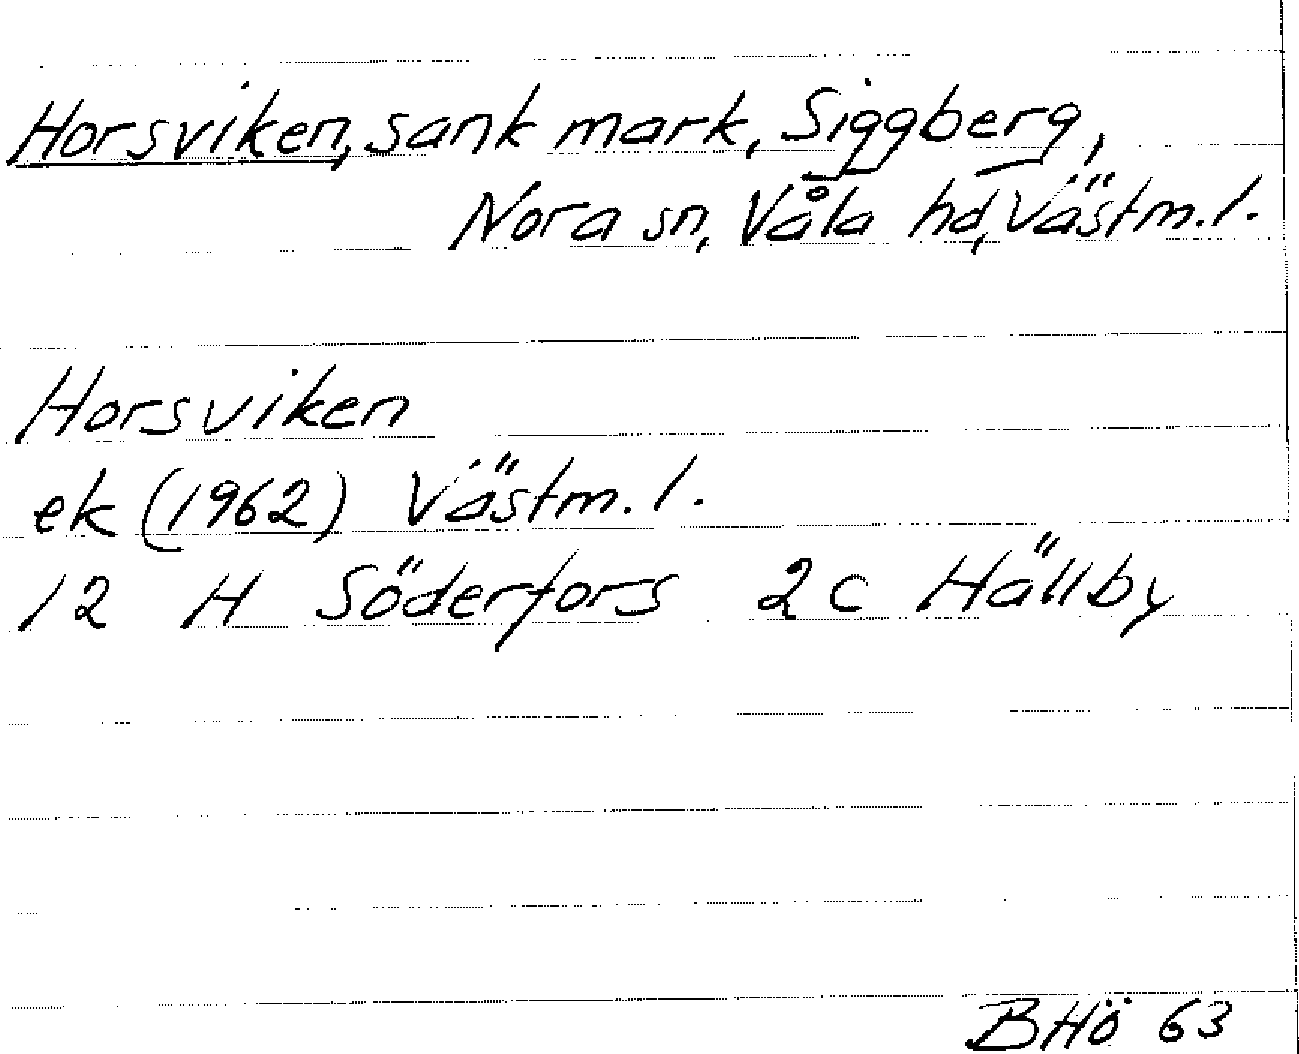 Horsviken, sank mark, Siggberg,
Nora sn, Våla hd, Västm.l.
Horsviken
ek (1962) Västm.l.
12 H Söderfors 2c Hällby
BHö 63